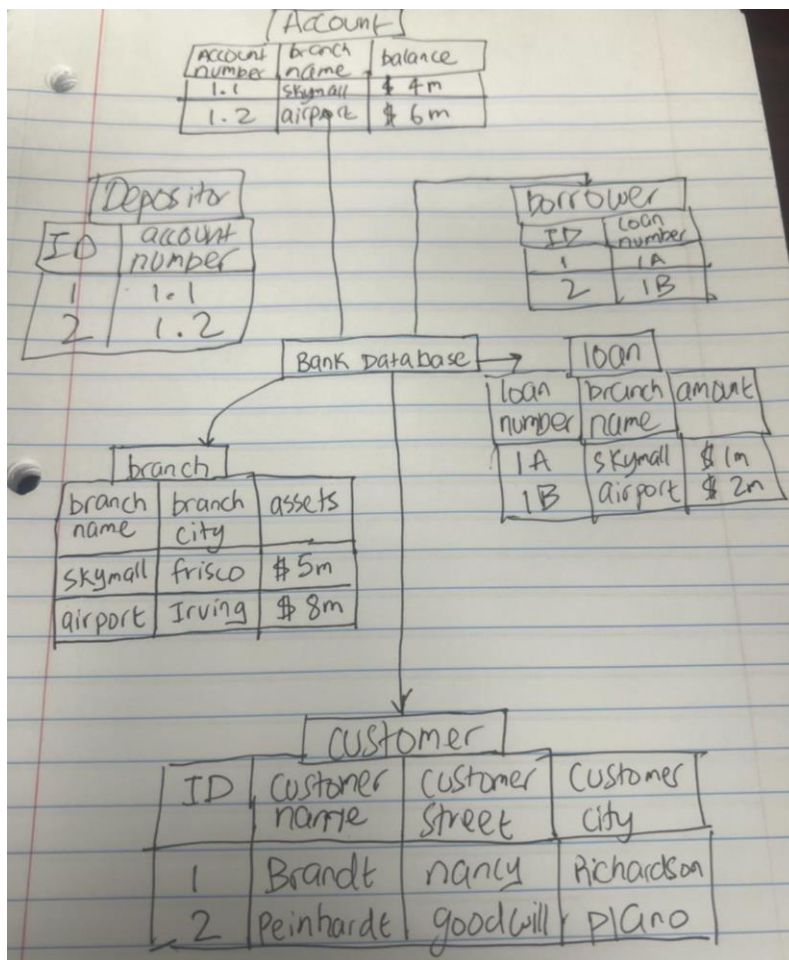 Account
Account number branch name balance
1.1 skymall $ 4m
1.2 airport $ 6m
Depositor
ID account number
1 1.1
2 1.2
borrower
ID loan number
1 1A
2 1B
Bank Database
loan
loan number branch name amount
1A skymall $ 1m
1B airport $ 2m
branch
branch name branch city assets
skymall frisco $ 5m
airport Irving $ 8m
customer
ID customer name customer street customer city
1 Brandt nancy Richardson
2 Peinhardt goodwill plano